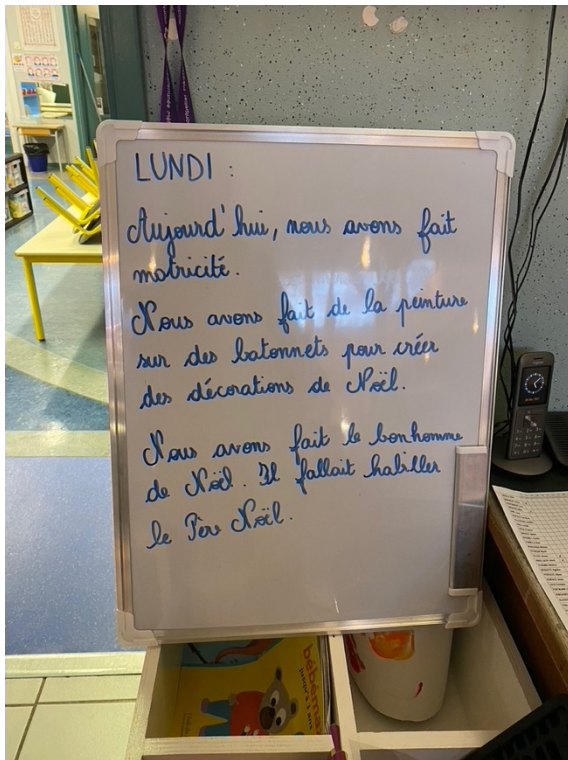 LUNDI :
Aujourd'hui, nous avons fait
motricité.
Nous avons fait de la peinture
sur des batonnets pour créer
des décorations de Noël.
Nous avons fait le bonhomme
de Noël. Il fallait habiller
le Père Noël.
bébéma
jusqu'à 3 ans